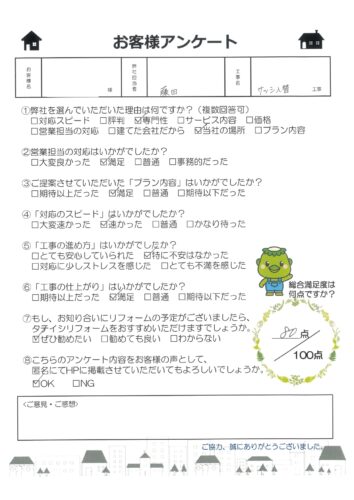 お客様アンケート
お客様名 様 弊社担当者 工事名 サッシ入替 工事
①弊社を選んでいただいた理由は何ですか?（複数回答可）
□対応スピード □評判 ☑専門性 □サービス内容 □価格
□営業担当の対応 □建てた会社だから ☑当社の場所 □プラン内容
②営業担当の対応はいかがでしたか?
□大変良かった ☑満足 □普通 □事務的だった
③ご提案させていただいた「プラン内容」はいかがでしたか?
□期待以上だった ☑満足 □普通 □期待以下だった
④「対応のスピード」はいかがでしたか?
□大変速かった ☑速かった □普通 □かなり待った
⑤「工事の進め方」はいかがでしたか?
□とても安心していられた ☑特に不安はなかった
□対応に少しストレスを感じた □とても不満を感じた
⑥「工事の仕上がり」はいかがでしたか?
□期待以上だった ☑満足 □普通 □期待以下だった
総合満足度は
何点ですか?
80点
／
100点
⑦もし、お知り合いにリフォームの予定がございましたら、
タテイシリフォームをおすすめいただけますでしょうか。
☑ぜひ勧めたい □勧めても良い □わからない
⑧こちらのアンケート内容をお客様の声として、
匿名にてHPに掲載させていただいてもよろしいでしょうか。
☑OK □NG
<ご意見・ご感想>
ご協力、誠にありがとうございました。